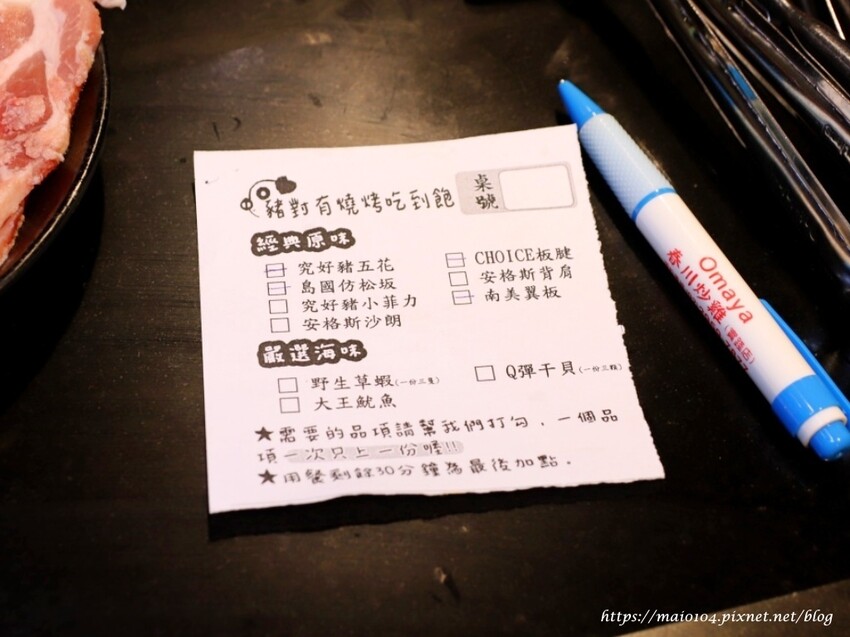 豬對有燒烤吃到飽
桌號
經典原味
究好豬五花
島國仿松坂
究好豬小菲力
安格斯沙朗
CHOICE板腱
安格斯背肩
南美翼板
嚴選海味
野生草蝦(一份三隻)
大王魷魚
Q彈干貝(一份三顆)
★需要的品項請幫我們打勾，一個品
項一次只上一份喔!!
★用餐剩餘30分鐘為最後加點。
Omaya
春川炒雞
https://maio104.pixnet.net/blog